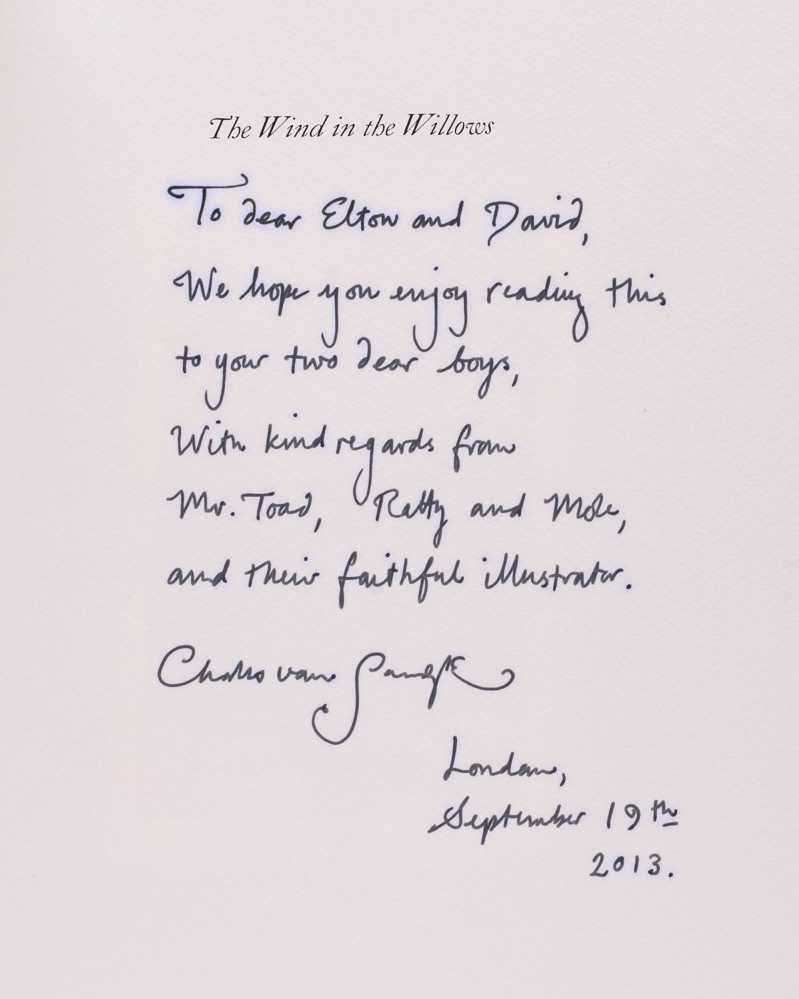 The Wind in the Willows
To dear Elton and David,
We hope you enjoy reading this
to your two dear boys,
With kind regards from
Mr. Toad, Ratty and Mole,
and their faithful illustrator.
Charles van Sandwyk
London,
September 19th
2013.